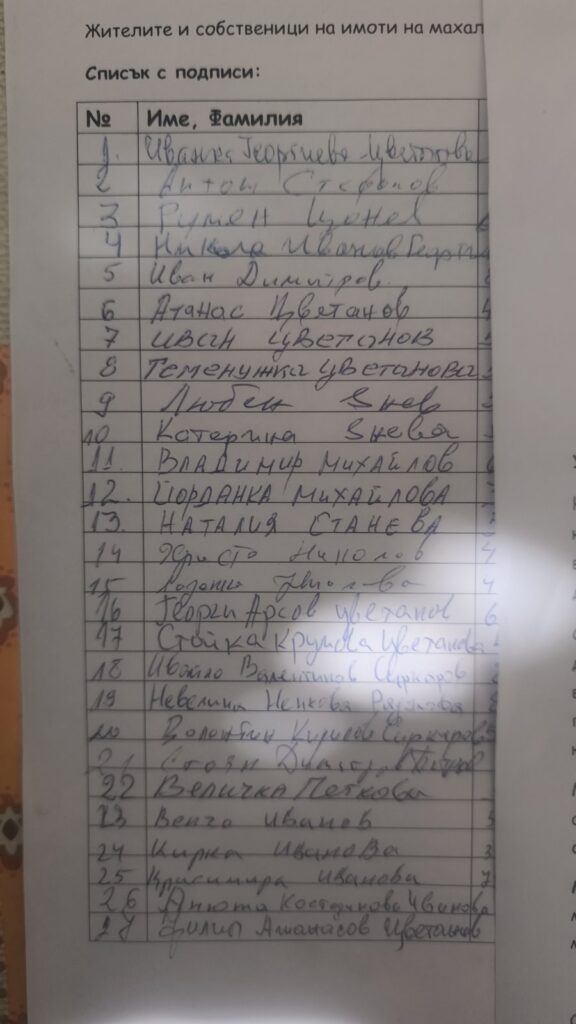 Жителите и собственици на имоти на махал
Списък с подписи:
№ Име, Фамилия
1. Иванка Георгиева Цветкова
2 Антон Стефанов
3 Румен Цонев
4 Никола Иванов Георги
5 Иван Димитров.
6 Атанас Цветанов
7 Иван Цветанов
8 Теменужка Цветанова
9 Любен Янев
10 Катерина Янева
11. ВЛАДИМИР МИХАЙЛОВ
12. ЙОРДАНКА МИХАЙЛОВА
13. НАТАЛИЯ СТАНЕВА
14 Христо Николов
15 Николова
16 Георги Арсов Цветанов
17 Стойка Крумова Цветанова
18 Ивайло Валентинов
19 Невелина Ненкова
20 Валентин Кирилов
21 Стоян
22 Величка Петкова
23 Венчо Иванов
24 Кирка Иванова
25 Красимира Иванова
26 Анюта Костадинова Иванова
27 Филип Атанасов Цветанов